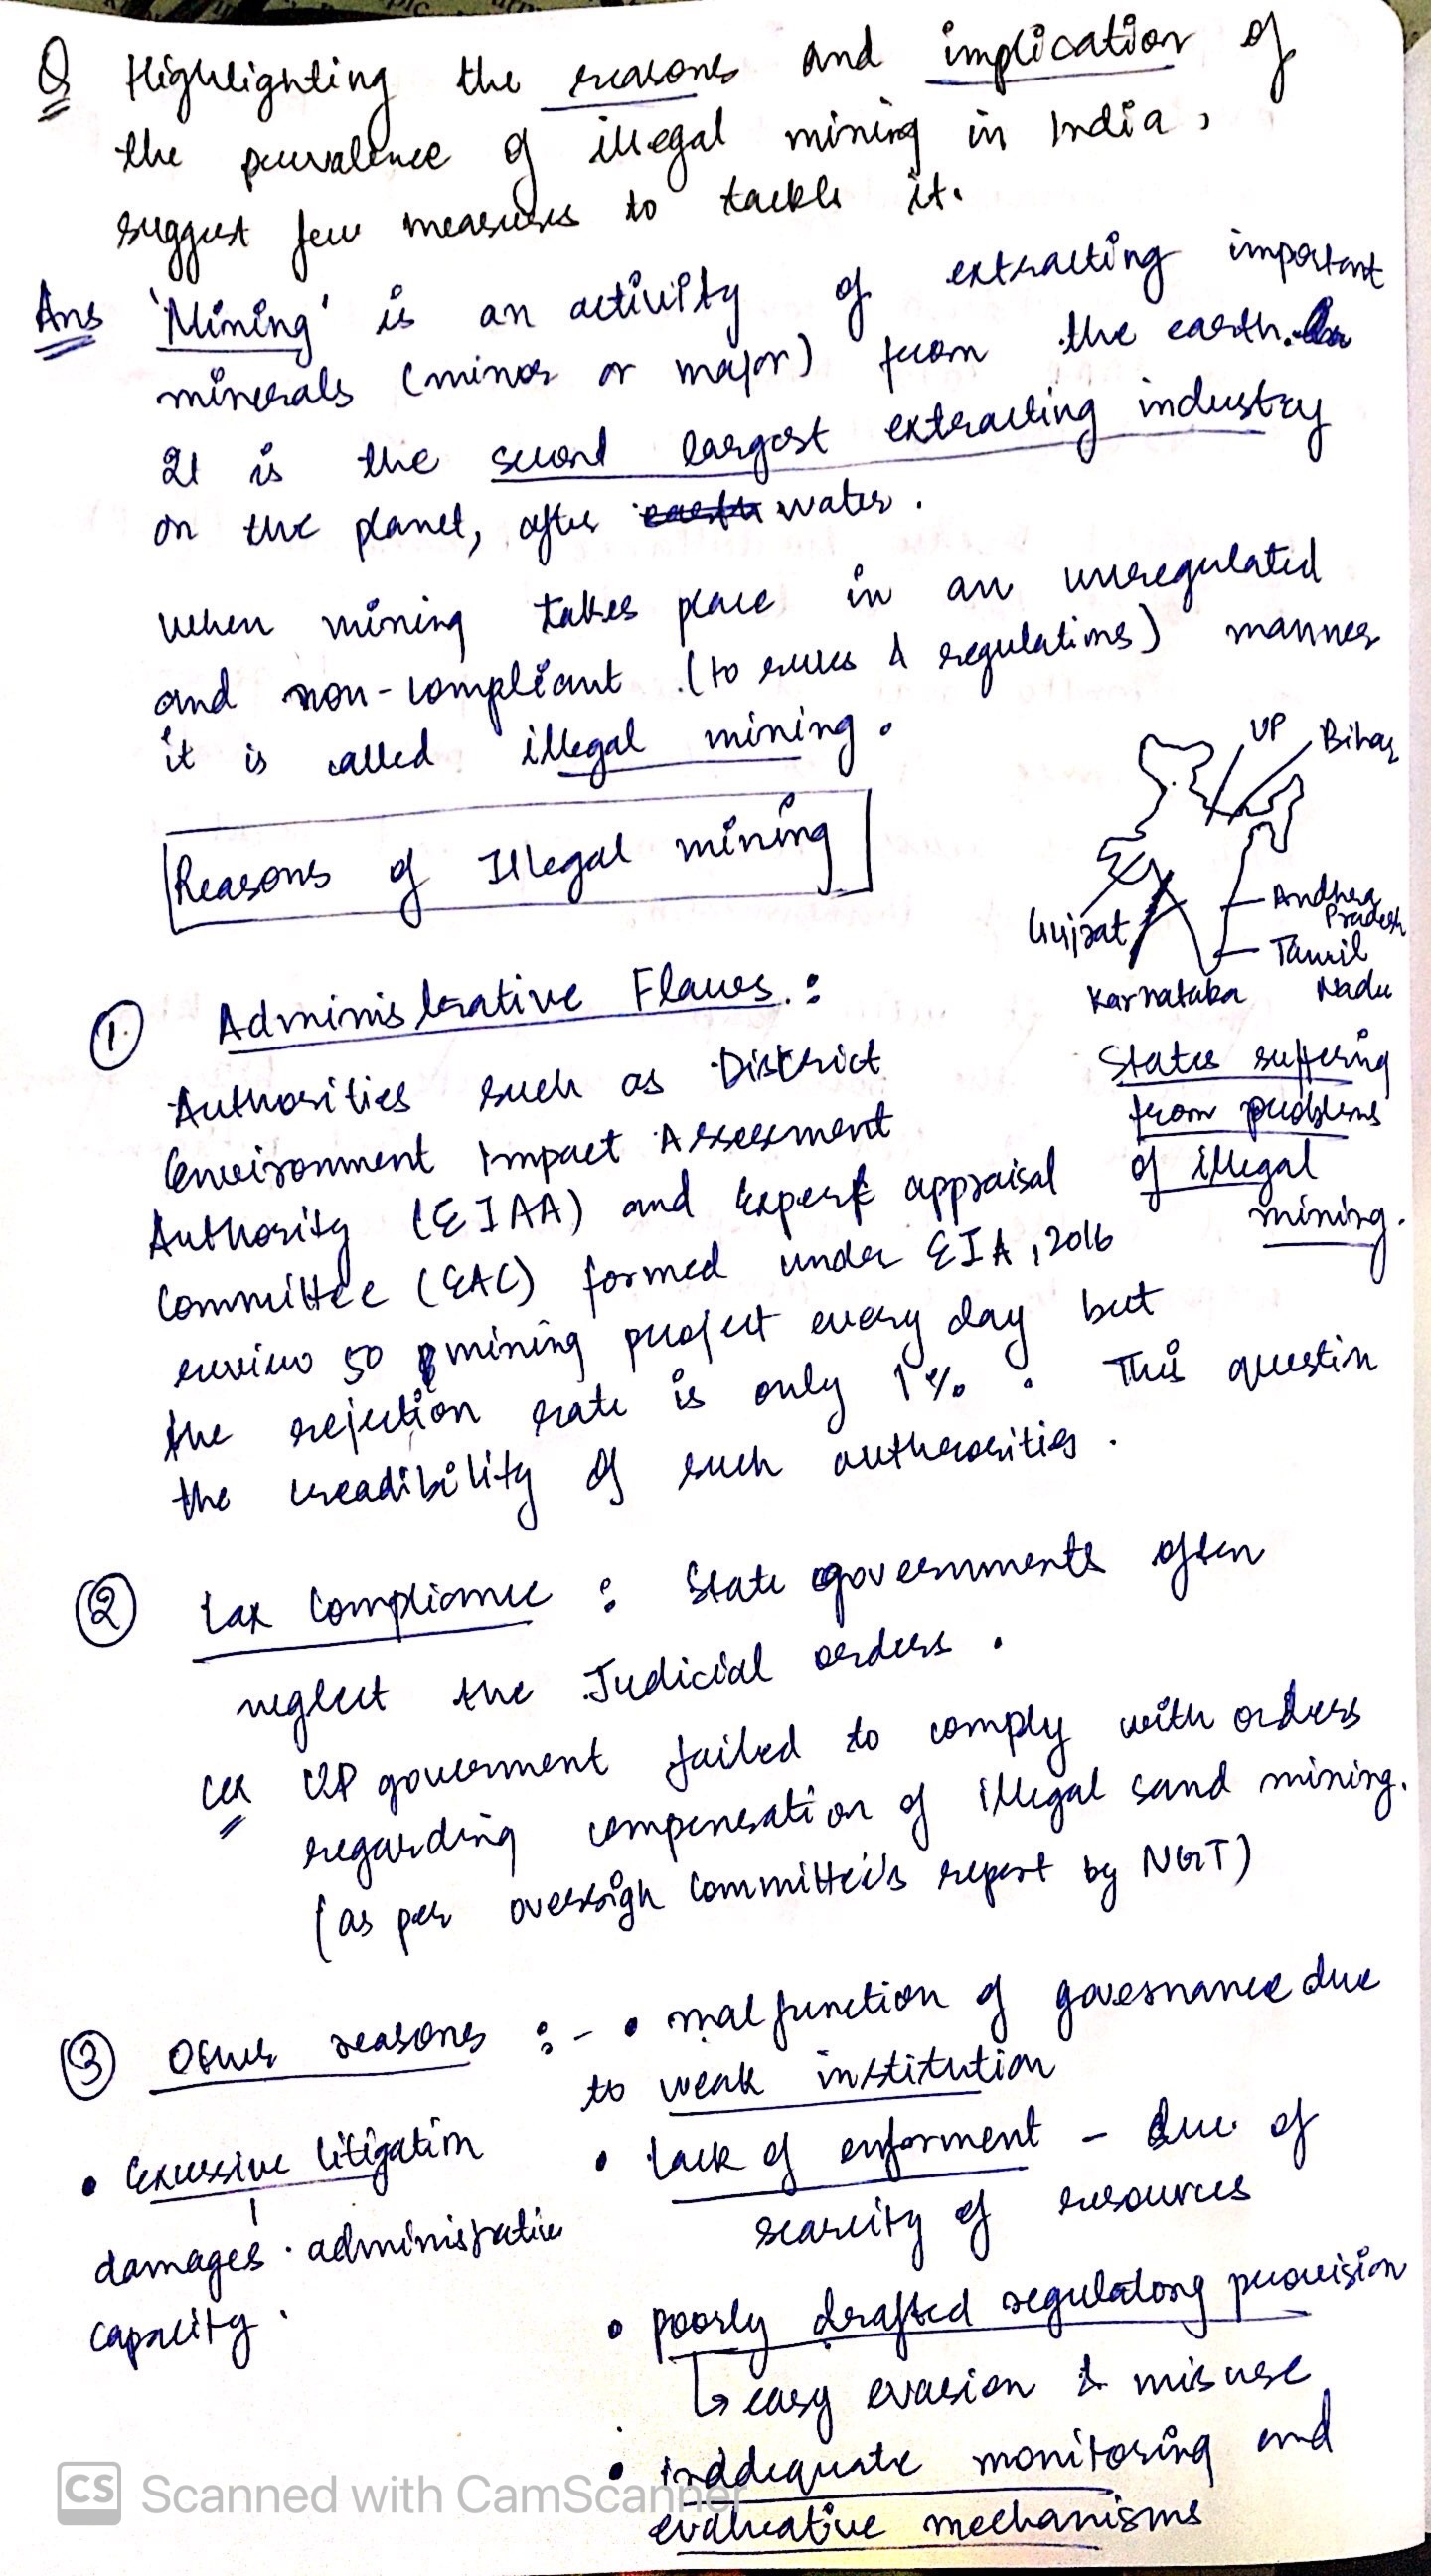 Q Highlighting the reasons and implication of
the prevalence of illegal mining in India,
suggest few measures to tackle it.
Ans 'Mining' is an activity of extracting important
minerals (minor or major) from the earth.
It is the second largest extracting industry
on the planet, after earth water.
when mining takes place in an unregulated
and non-compliant (to rules & regulations) manner
it is called illegal mining.
UP
Bihar
Gujrat
Andhra
Pradesh
Tamil
Nadu
Karnataka
States suffering
from problems
of illegal
mining.
Reasons of Illegal mining
1. Administrative Flaws.:
Authorities such as District
Environment Impact Assessment
Authority (EIAA) and Expert appraisal
Committee (EAC) formed under EIA, 2016
review 50 mining project every day but
the rejection rate is only 1%. This question
the creadibility of such autherorities.
2 Lax Compliance : State governments often
neglect the Judicial orders.
ex UP government failed to comply with orders
regarding compensation of illegal sand mining.
(as per oversigh Committee's report by NGT)
3 Other reasons :- • malfunction of governance due
to weak institution
• Excessive litigation
damages administrative
capacity.
• lack of enforment - due of
scarcity of resources
• poorly drafted regulatory provision
↳ easy evasion & misuse
• inadequate monitoring and
evaluative mechanisms
CS Scanned with CamScanner